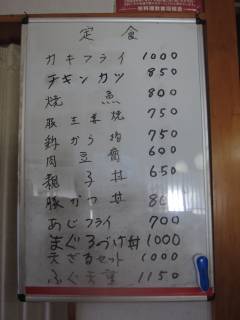 定食
カキフライ 1000
チキンカツ 850
焼魚 800
豚生姜焼 750
鶏から揚 750
肉豆腐 600
親子丼 650
豚かつ丼 800
あじフライ 700
まぐろづけ丼 1000
えざるセット 1000
1150